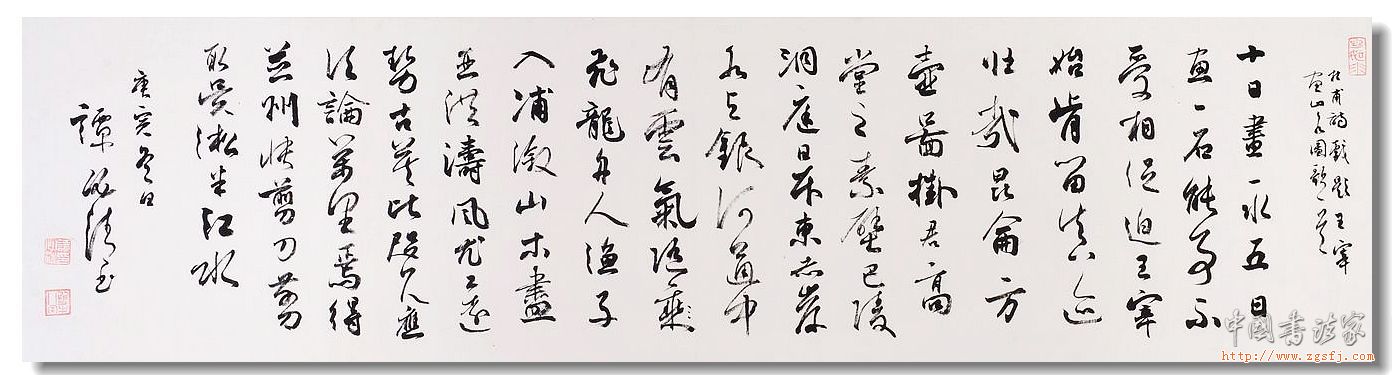 杜甫詩戲題王宰
畫山水圖歌一首
十日畫一水五日
畫一石能事不
受相促迫王宰
始肯留真跡
壯哉昆侖方
壺圖掛君高
堂之素壁巴陵
洞庭日本東赤岸
水與銀河通中
有雲氣隨
飛龍舟人漁子
入浦漵山木盡
亞洪濤風尤工遠
勢古莫比咫尺應
須論萬里焉得
并州快剪刀剪
取吳淞半江水
庚寅冬日
譚清書
中国书法家
http://www.zgsfj.com